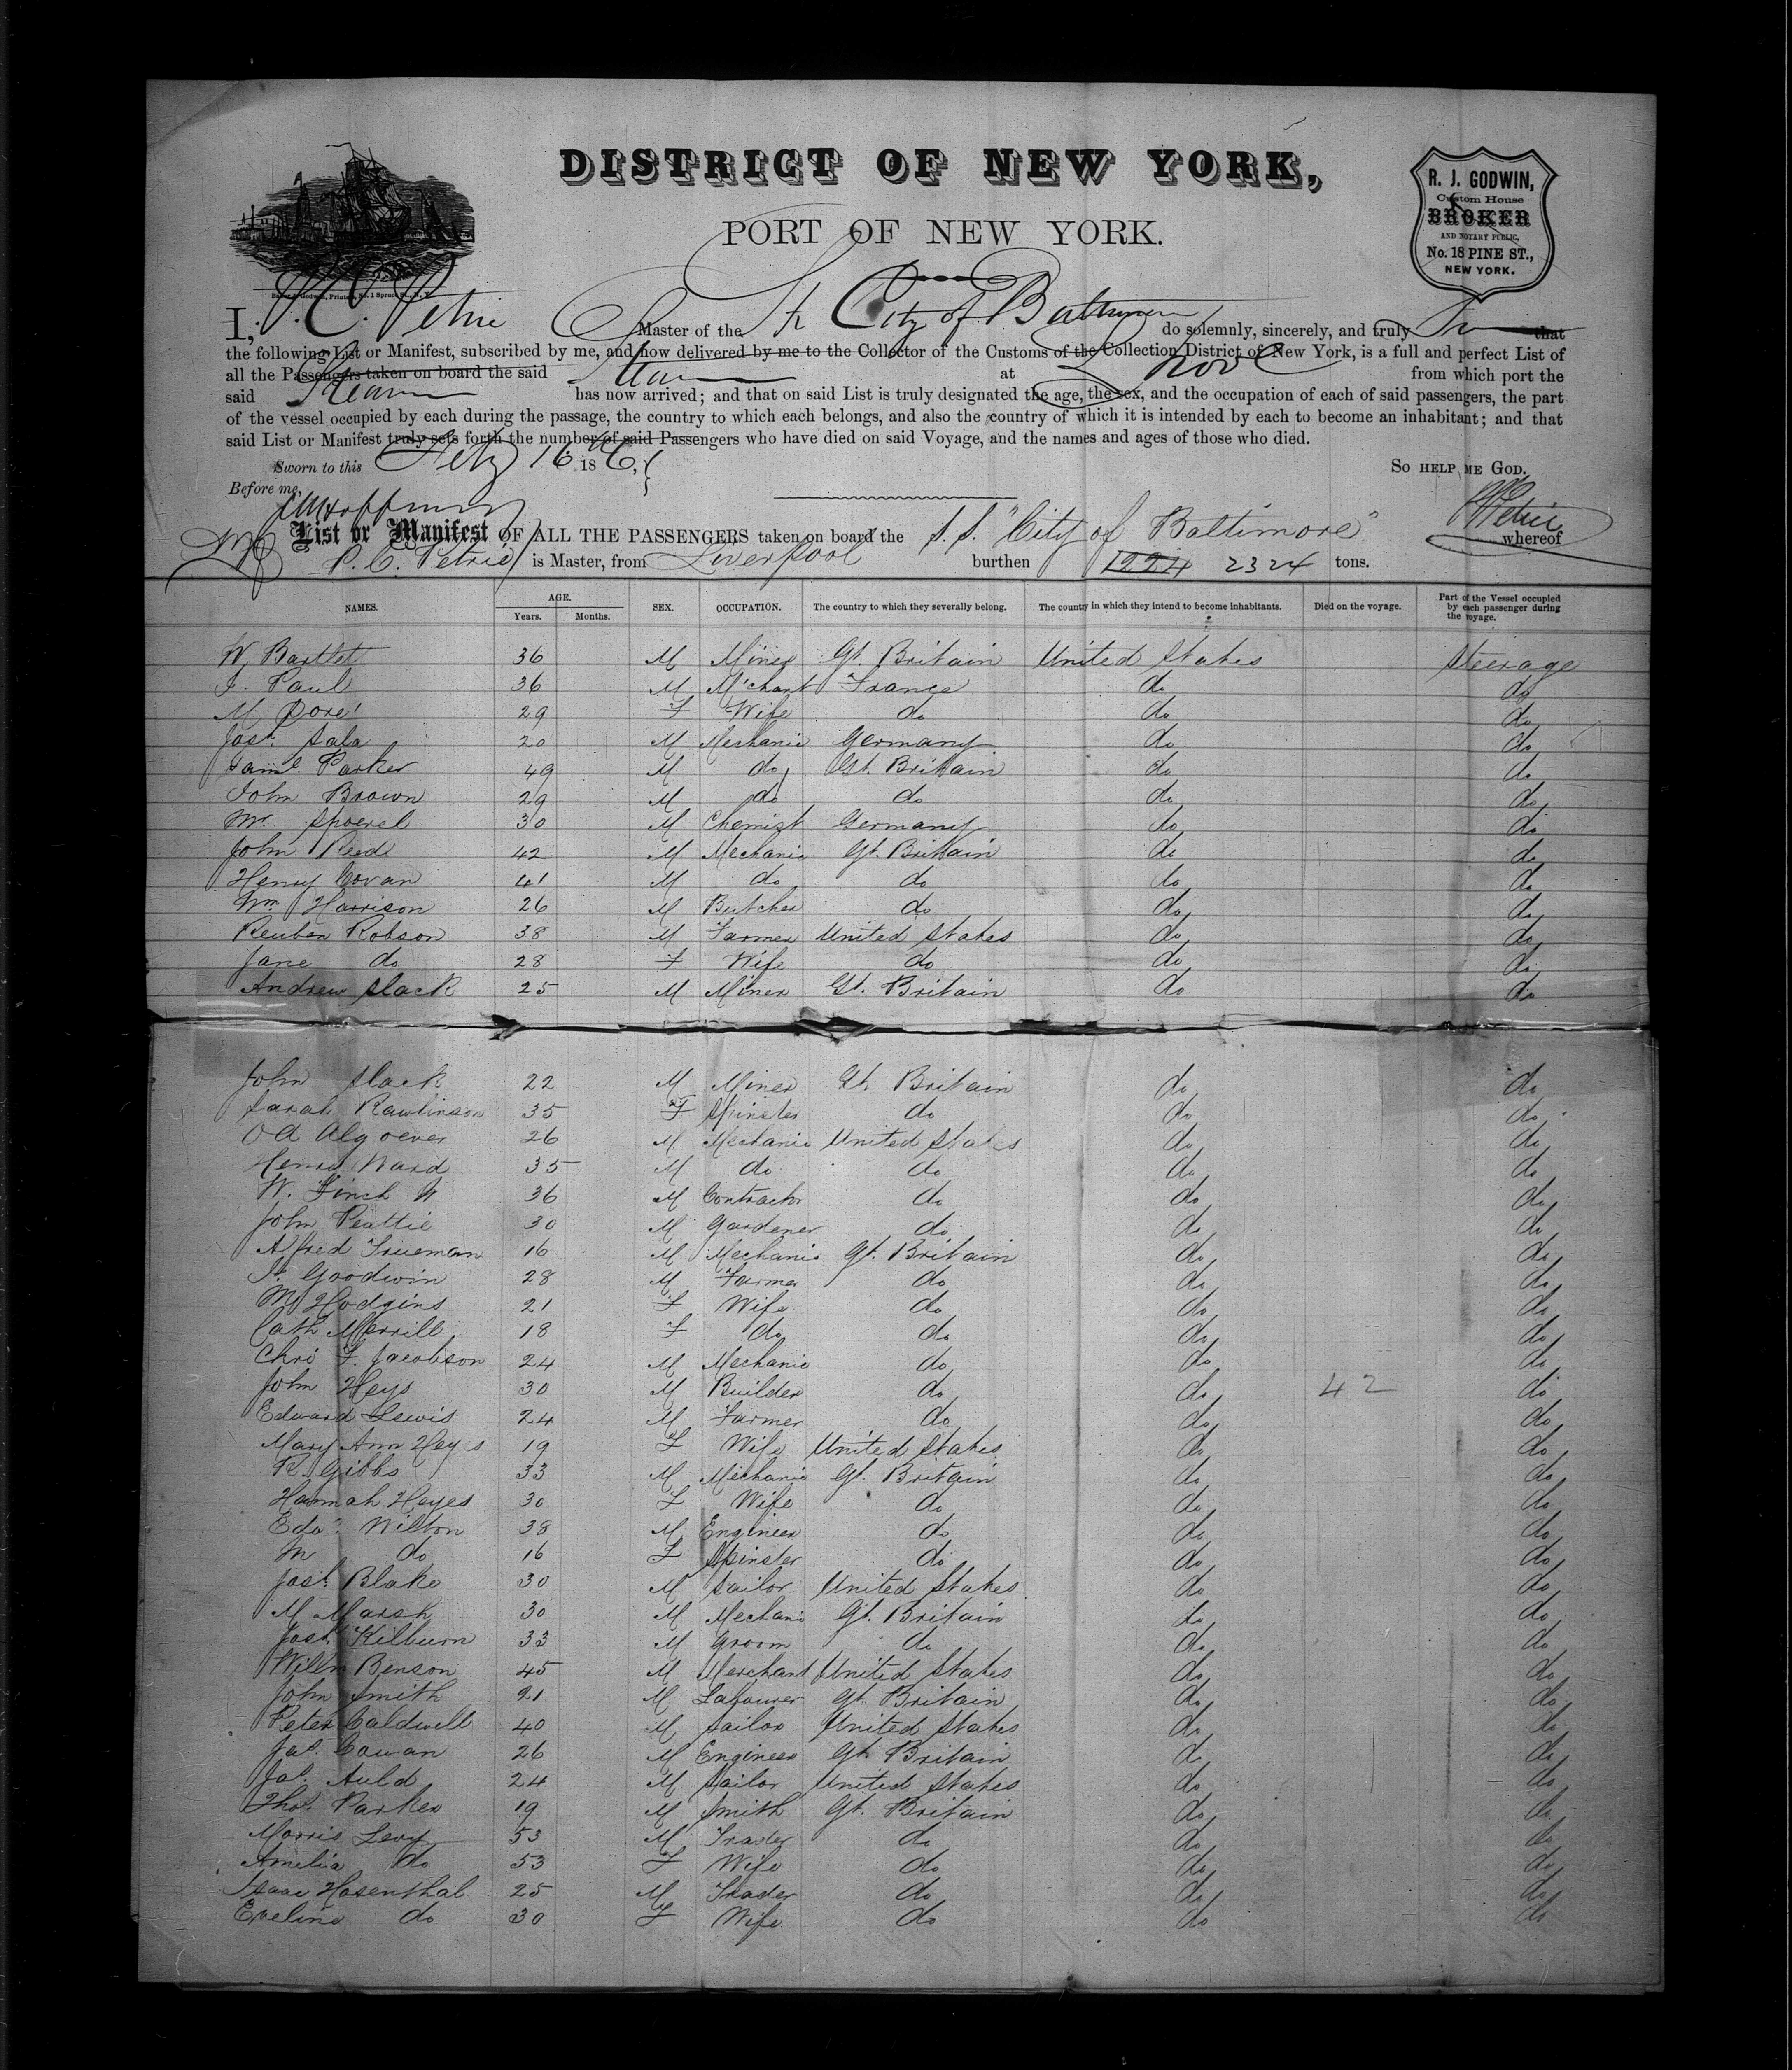 DISTRICT OF NEW YORK,
PORT OF NEW YORK.
R. J. GODWIN,
Custom House
BROKER
AND NOTARY PUBLIC,
No. 18 PINE ST.,
NEW YORK.
I, P. C. Petrie Master of the Str City of Baltimore do solemnly, sincerely, and truly that
the following List or Manifest, subscribed by me, and now delivered by me to the Collector of the Customs of the Collection District of New York, is a full and perfect List of
all the Passengers taken on board the said at from which port the
said has now arrived; and that on said List is truly designated the age, the sex, and the occupation of each of said passengers, the part
of the vessel occupied by each during the passage, the country to which each belongs, and also the country of which it is intended by each to become an inhabitant; and that
said List or Manifest truly sets forth the number of said Passengers who have died on said Voyage, and the names and ages of those who died.
Sworn to this Feby 16 18 SO HELP ME GOD.
Before me,
Petrie
List or Manifest OF ALL THE PASSENGERS taken on board the S.S. "City of Baltimore" whereof
P. C. Petrie is Master, from Liverpool burthen 1224 2324 tons.
NAMES. AGE. Years. Months. SEX. OCCUPATION. The country to which they severally belong. The country in which they intend to become inhabitants. Died on the voyage. Part of the Vessel occupied by each passenger during the voyage.
W. Bartlet 36 M Miner Gt. Britain United States Steerage
Paul 36 M M'chant France do do
M Doré 29 F Wife do do do
Josh. Sala 20 M Mechanic Germany do do
Saml. Parker 49 M do Gt. Britain do do
John Brown 29 M do do do do
Mr. Spoerel 30 M Chemist Germany do do
John Reed 42 M Mechanic Gt. Britain do do
Henry Covan 41 M do do do do
Wm. Harrison 26 M Butcher do do do
Reuben Robson 38 M Farmer United States do do
Jane do 28 F Wife do do do
Andrew Slack 25 M Miner Gt. Britain do do
John Slack 22 M Miner Gt. Britain do do
Sarah Rawlinson 35 F Spinster do do do
26 M Mechanic United States do do
Henry Ward 35 M do do do do
W. Finch 36 M Contractor do do do
John Peattie 30 M Gardener do do do
Alfred Trueman 16 M Mechanic Gt. Britain do do
Goodwin 28 M Farmer do do do
M Hodgins 21 F Wife do do do
Cath Merrill 18 F do do do do
Chri F. Jacobson 24 M Mechanic do do do
John Heys 30 M Builder do do 42 do
Edward Lewis 24 M Farmer do do do
Mary Ann Heyes 19 F Wife United States do do
R. Gibbs 33 M Mechanic Gt. Britain do do
Hannah Heyes 30 F Wife do do do
Edwd. Wilton 38 M Engineer do do do
M do 16 F Spinster do do do
Josh. Blake 30 M Sailor United States do do
M Marsh 30 M Mechanic Gt. Britain do do
Josh. Kilburn 33 M Groom do do do
Willm Benson 45 M Merchant United States do do
John Smith 21 M Labourer Gt. Britain do do
Peter Caldwell 40 M Sailor United States do do
Jas. Cowan 26 M Engineer Gt. Britain do do
Jas. Auld 24 M Sailor United States do do
Thos. Parker 19 M Smith Gt. Britain do do
Morris Levy 53 M Trader do do do
Amelia do 53 F Wife do do do
Isaac Hosenthal 25 M Trader do do do
Eveline do 30 F Wife do do do